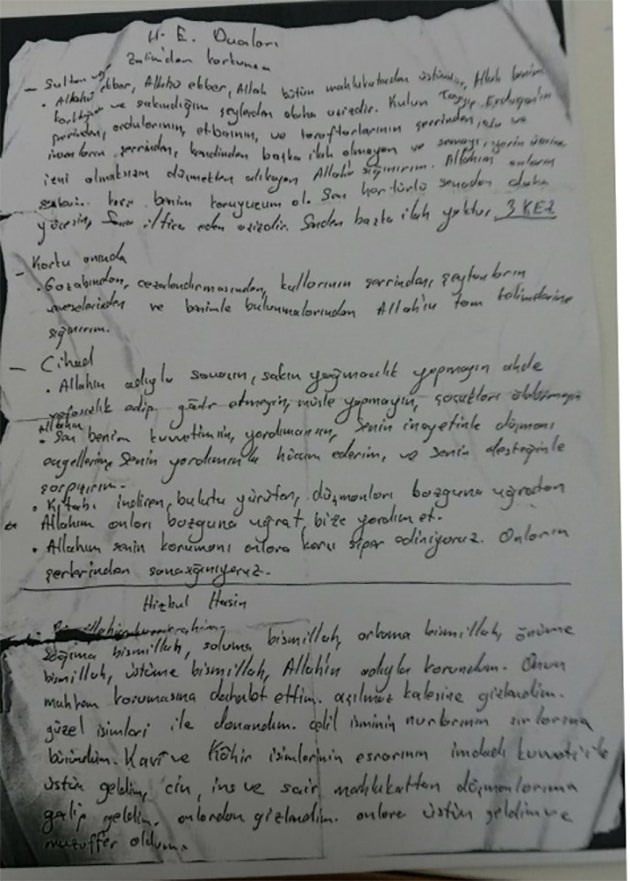 H. E. Duaları
Zalimden korkunca
- Sultan
. Allahü ekber, Allahü ekber, Allah bütün mahlukatından üstündür, Allah benim
korktuğum ve sakındığım şeylerden daha azizdir. Kulun Tayyip Erdoğan'ın
şerrinden, ordularının, etbaının, ve taraftarlarının şerrinden, ve
insanların şerrinden, kendinden başka ilah olmayan ve semayı, yerin üzerine
izni olmaksızın düşmekten alıkoyan Allaha sığınırım. Allahım onların
karşı benim koruyucum ol. Sen her türlü senadan daha
yücesin, Sana iltica eden azizdir. Senden başka ilah yoktur. 3 KEZ
- Korku anında
. Gazabından, cezalandırmasından, kullarının şerrinden, şeytanların
vesveselerinden ve benimle bulunmalarından Allah'ın tam kelimelerine
sığınırım.
- Cihad
. Allahın adıyla savaşın, sakın yağmacılık yapmayın ahde
vefasızlık edip gadr etmeyin, müsle yapmayın, çocukları öldürmeyin
. Allahım Sen benim kuvvetimsin, yardımcımsın, Senin inayetinle düşmanı
engellerim, Senin yardımınla hücum ederim, ve senin desteğinle
çarpışırım.
. Kitabı indiren, bulutu yürüten, düşmanları bozguna uğratan
Allahım onları bozguna uğrat, bize yardım et.
. Allahım senin korumanı onlara karşı siper ediniyoruz. Onların
şerlerinden sana sığınıyoruz.
Hizbul Hasin
. Bismillahirrahmanirrahim
Sağıma bismillah, soluma bismillah, arkama bismillah, önüme
bismillah, üstüme bismillah, Allah'ın adıyla korundum. Onun
muhkem korumasına dahalet ettim. açılmaz kalesine gizlendim.
güzel isimleri ile donandım. celil isminin nurlarının sırlarına
büründüm. Kavi ve Kahir isimlerinin esrarının imdadı kuvveti ile
üstün geldim, cin, ins ve sair mahlukattan düşmanlarıma
galip geldim. onlardan gizlendim. onlara üstün geldim ve
muzaffer oldum.